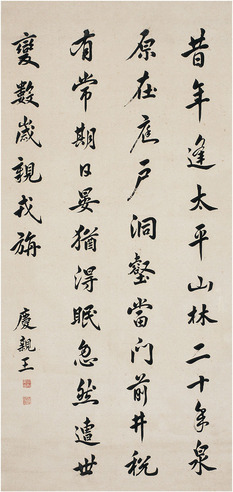 昔年逢太平山林二十年泉
原在庭戶洞壑當門前井稅
有常期日晏猶得眠忽然遭世
變數歲親戎旃
慶親王